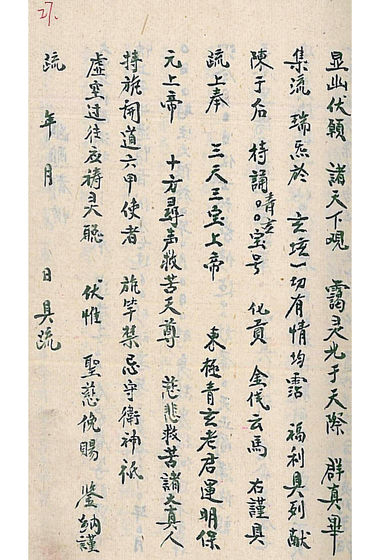 27.
显幽伏願 諸天下观 靄灵光于天際 群真畢
集流 瑞炁於 玄壇一切有情均霑 福利具列献
陳于后 持誦青玄宝号 化貢 金伐云馬 右謹具
疏上奉 三天三宝上帝 東極青玄老君運明保
元上帝 十方尋声救苦天尊 慈悲救苦諸大真人
特旌開道六甲使者 旌竿禁忌守衛神祇
虛空过往夜禱灵聪 伏惟 聖慈俛賜 鉴納謹
疏 年 月 日具疏